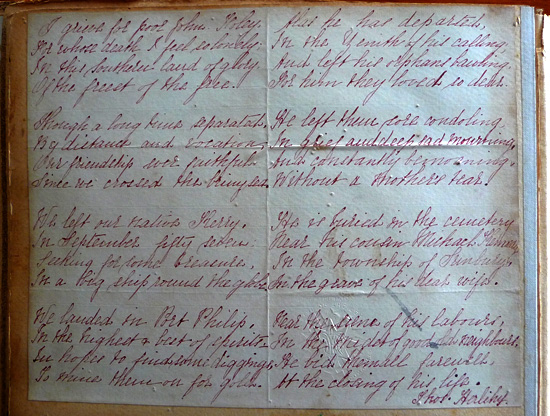 I grieve for poor John Foley.
For whose death I feel so lonely.
In this southern land of glory.
Of the freest of the free.
Though a long time separated,
By distance and vocation,
Our friendship ever faithful
Since we crossed the briny sea.
We left our native Kerry.
In September fifty seven.
Seeking for some treasure,
In a big ship round the globe
We landed in Port Philip.
In the highest & best of spirits
In hopes to find some diggings,
To mine them on for gold.
Alas he has departed,
In the Zenith of his calling
And left his orphans bawling.
For him they loved so dear.
He left them sore condoling
In grief and deep sad mourning,
And constantly bemoaning,
Without a mothers tear.
He is buried in the cemetery
Near his cousin Michael
In the township of
In the grave of his dear wife.
Near the scene of his labours,
In the midst of good neighbours.
He bid them all farewell
At the closing of his life.
Thos. Herlihy.